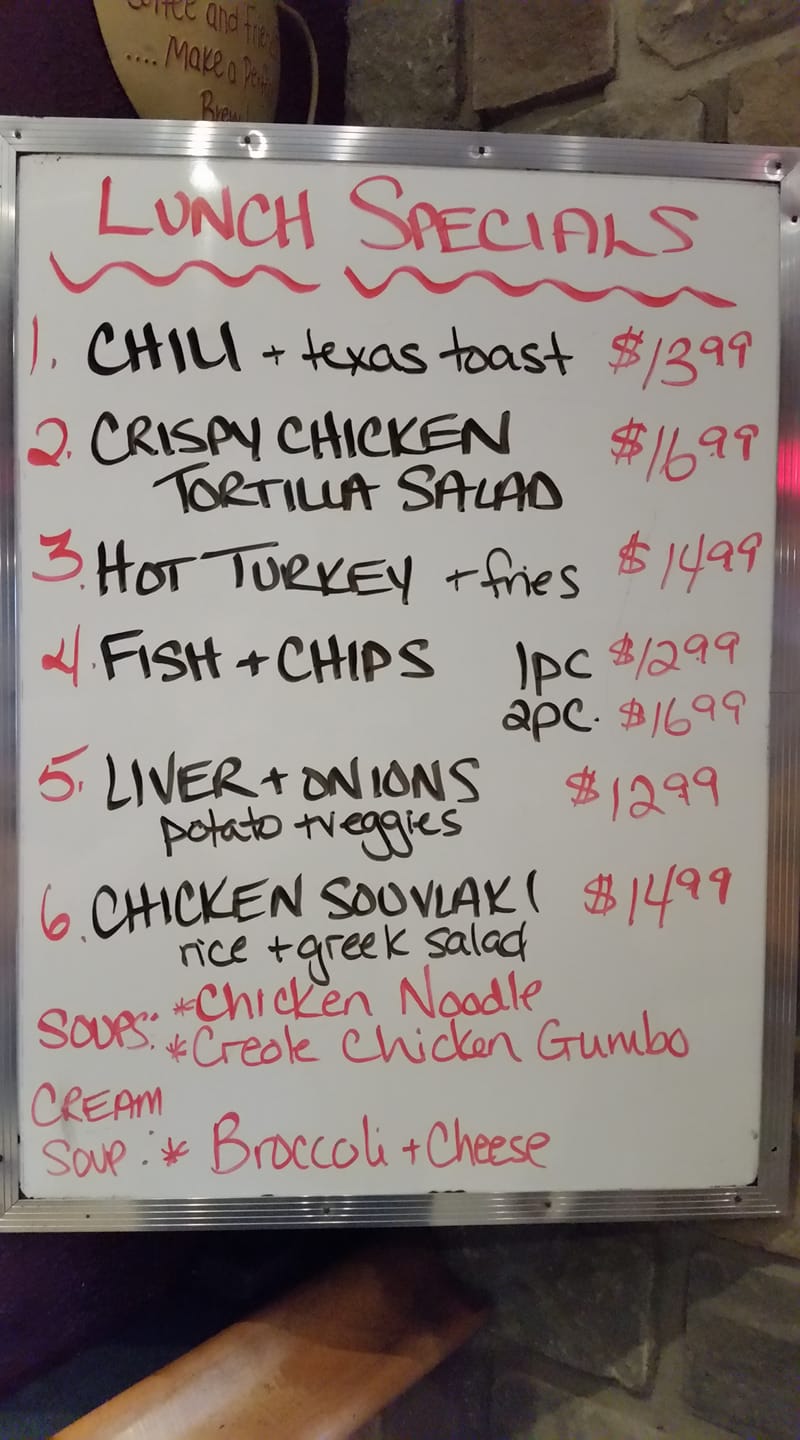 Coffee and
.... Make a
Brew
LUNCH SPECIALS
1. CHILI + texas toast $13.99
2. CRISPY CHICKEN $16.99
TORTILLA SALAD
3. HOT TURKEY + fries $14.99
4. FISH + CHIPS 1pc $12.99
2pc. $16.99
5. LIVER + ONIONS $12.99
potato + veggies
6. CHICKEN SOUVLAKI $14.99
rice + greek salad
SOUPS: *Chicken Noodle
*Creole Chicken Gumbo
CREAM
SOUP: * Broccoli + Cheese